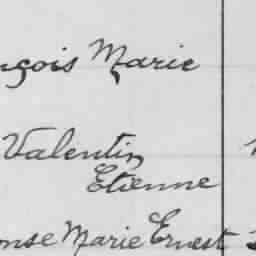 nçois Marie
Valentin
Etienne
onse Marie Ernest